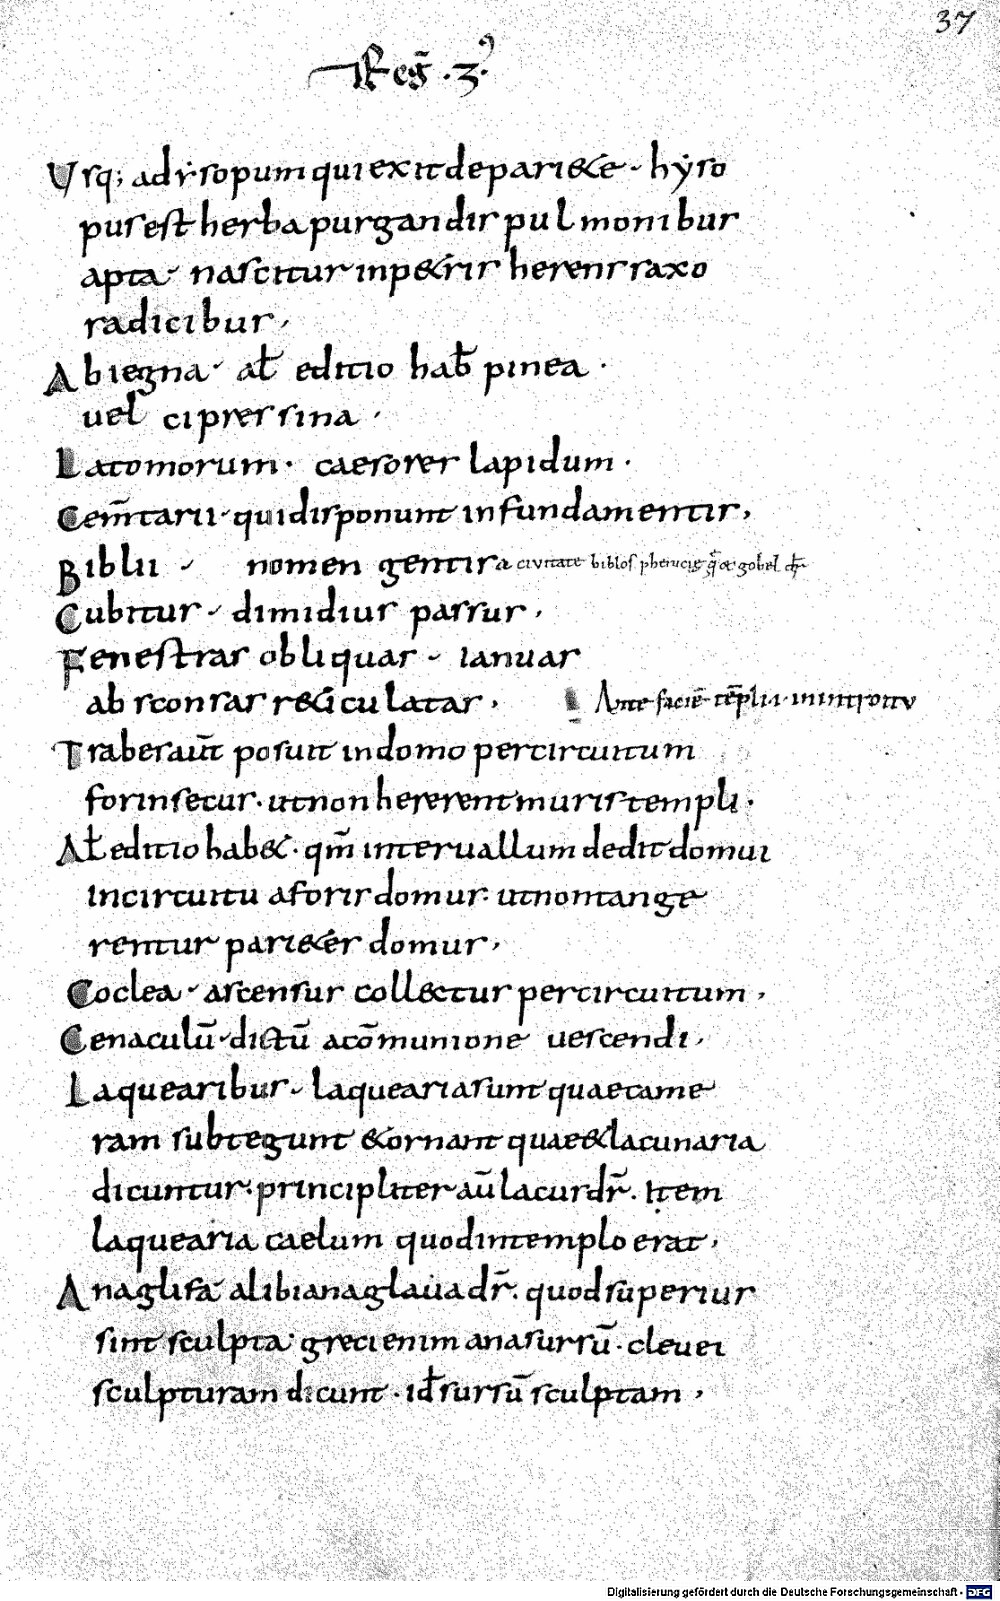 37
Reg̅ · 3⁹·
Usq; ad ysopum qui exit de pariete · hyso
pus est herba purgandis pulmonibus
apta · nascitur in petris herens saxo
radicibus,
Abiegna · al̅ editio hab̅ pinea ·
uel cipressina ·
Latomorum · caesores lapidum ·
Cem̅tarii · qui disponunt in fundamentis,
Biblii · nomen gentis a ciuitate biblos phenicis q̅ & gobel dr̅
Cubitus · dimidius passus,
Fenestras obliquas · ianuas
absconsas reticulatas,
Ante facie̅ te̅pli · in introitu
Trabes aut̅ posuit in domo per circuitum
forinsecus · ut non hererent muris templi ·
Al̅ editio habet · qm̅ interuallum dedit domui
In circuitu a foris domus · ut non tange
rentur parietes domus,
Coclea · ascensus collectus per circuitum,
Cenaculu̅ · dictu̅ a co̅munione uescendi,
Laquearibus · laquearia sunt quae came
ram subtegunt & ornant quae & lacunaria
dicuntur · principliter au̅ lacus dr̅. Item
laquearia caelum quod in templo erat,
Anaglifa alibi anaglaua dr̅. quod superius
sint sculpta · greci enim ana sursu̅ · cleuei
sculpturam dicunt · id̅ sursu̅ sculptam,
Digitalisierung gefördert durch die Deutsche Forschungsgemeinschaft - DFG